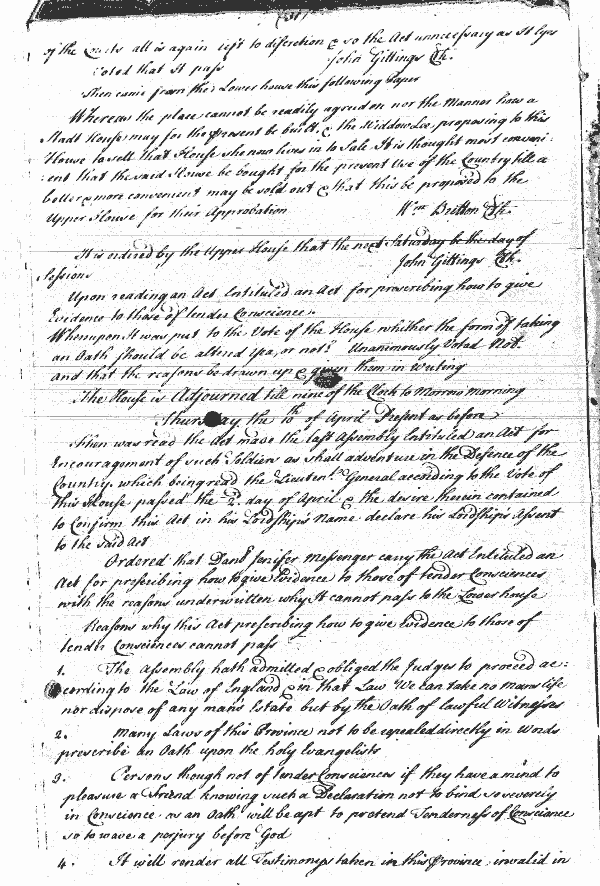 of the Courts all is again left to discretion & so the Act unnecessary as it lyes
Voted that it pass John Gittings Clk.
Then came from the Lower house this following Paper
Whereas the place cannot be readily agreed on nor the Manner how a
Stadt House may for the present be built & the Widdow Lee proposing to this
House to sell that House she now lives in to Sale It is thought most conveni-
ent that the said House be bought for the present Use of the Country till a
better & more convenient may be sold out & that this be proposed to the
Upper House for their Approbation Wm Bretton Clk.
It is ordered by the Upper House that the next Saturday be the day of
Sessions John Gittings Clk.
Upon reading an Act Entituled an Act for prescribing how to give
Evidence to those of tender Conscience.
Whereupon It was put to the Vote of the House whether the form of taking
an Oath should be altered Yea, or not? Unanimously Voted Not
and that the reasons be drawn up & given them in writing
The House is Adjourned till nine of the Clock to Morrow morning
Thursday the 10th of April Present as before
Then was read the Act made the last Assembly Entituled an Act for
Encouragement of such Soldiers as shall adventure in the Defence of the
Country which being read the Lieutent General according to the Vote of
this House passed the 2d day of April & the desire therein contained
to Confirm this Act in his Lordship's Name declare his Lordships Assent
to the said Act
Ordered that Danl Jenifer Messenger carry the Act Entituled an
Act for prescribing how to give Evidence to those of tender Consciences
with the reasons underwritten why It cannot pass to the Lower house
Reasons why this Act prescribing how to give Evidence to those of
tender Consciences cannot pass
1. The Assembly hath admitted & obliged the Judges to proceed ac:
cording to the Law of England & in that Law We can take no mans life
nor dispose of any mans Estate but by the Oath of lawful Witnesses
2. Many Laws of this Province not to be repealed directly in words
prescribe an Oath upon the holy Evangelists
3. Persons though not of tender Consciences if they have a mind to
pleasure a Friend knowing such a Declaration not to bind so severely
in Conscience as an Oath will be apt to pretend Tenderness of Conscience
so to wave a perjury before God
4. It will render all Testimonys taken in this Province invalid in